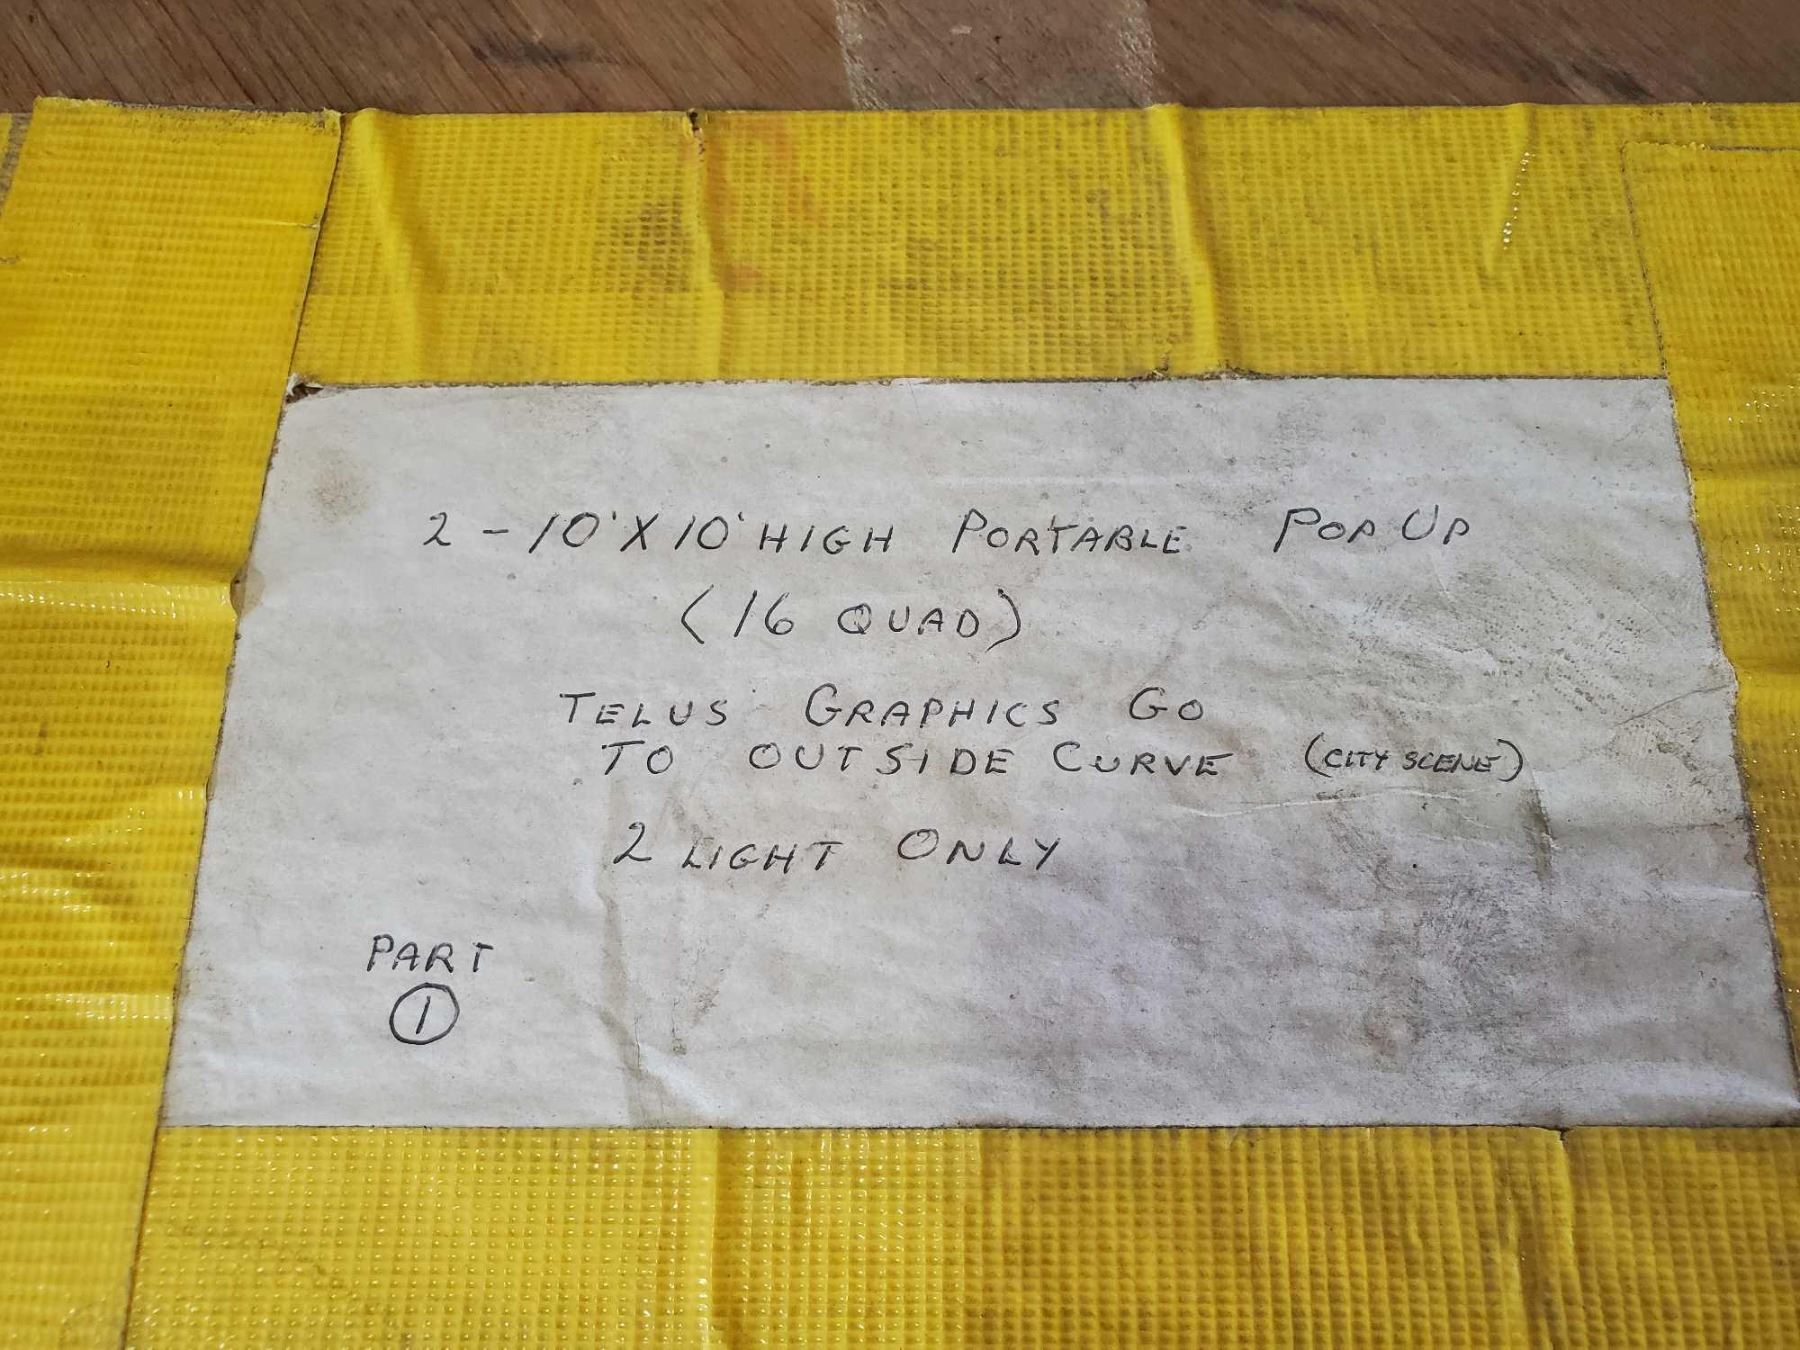 2 - 10' X 10' HIGH PORTABLE POP UP
(16 QUAD)
TELUS GRAPHICS GO
TO OUTSIDE CURVE (CITY SCENE)
2 LIGHT ONLY
PART
1